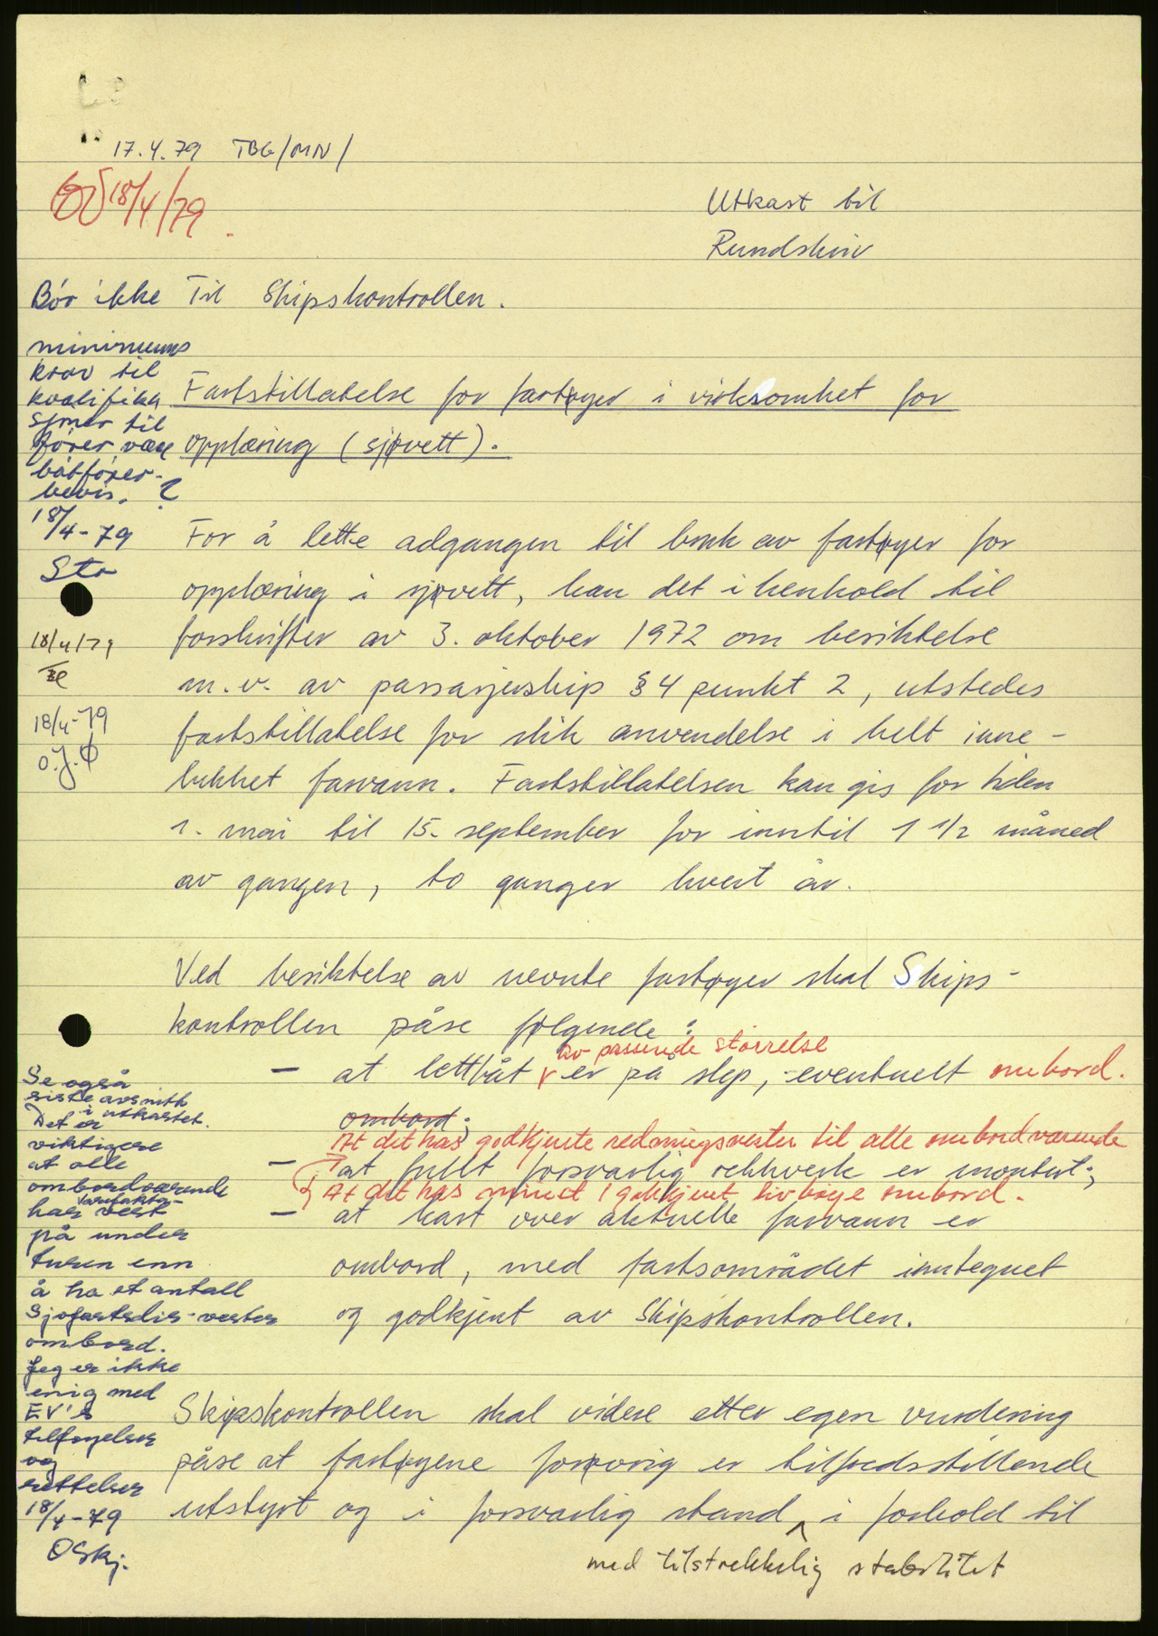 17.4.79 TBG/MN/
EV 18/4/79.
Utkast til
Rundskriv
Til Skipskontrollen.
Bør ikke
minimums
krav til
kvalifika
sjoner til
fører være
båtfører-
bevis. ?
18/4-79
Sto
18/4/79
18/4-79
O.J.Ø
Fartstillatelse for fartøyer i virksomhet for
opplæring (sjøvett).
For å lette adgangen til bruk av fartøyer for
opplæring i sjøvett, kan det i henhold til
forskrifter av 3. oktober 1972 om besiktelse
m.v. av passasjerskip § 4 punkt 2, utstedes
fartstillatelse for slik anvendelse i helt inne-
lukket farvann. Fartstillatelsen kan gis for tiden
1. mai til 15. september for inntil 1 1/2 måned
av gangen, to ganger hvert år.
Ved besiktelse av nevnte fartøyer skal Skips-
kontrollen påse følgende:
av passende størrelse
- at lettbåt er på slep, eventuelt ombord.
ombord;
At det has godkjente redningsvester til alle ombordværende
- at fullt forsvarlig rekkverk er montert;
At det has minst 1 godkjent livbøye ombord.
- at kart over aktuelle farvann er
ombord, med fartsområdet inntegnet
og godkjent av Skipskontrollen.
Se også
siste avsnitt
i utkastet.
Det er
viktigere
at alle
ombordværende
har vest
på under
turen enn
å ha et antall
Sjøfartsdir-vester
ombord.
Jeg er ikke
enig med
EV's
tilføyelser
og
rettelser
18/4-79
OSkj.
Skipskontrollen skal videre etter egen vurdering
påse at fartøyene forøvrig er tilfredsstillende
utstyrt og i forsvarlig stand i forhold til
med tilstrekkelig stabilitet